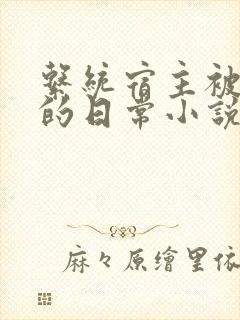 繫統宿主被
的日常小説
麻々原繪里依